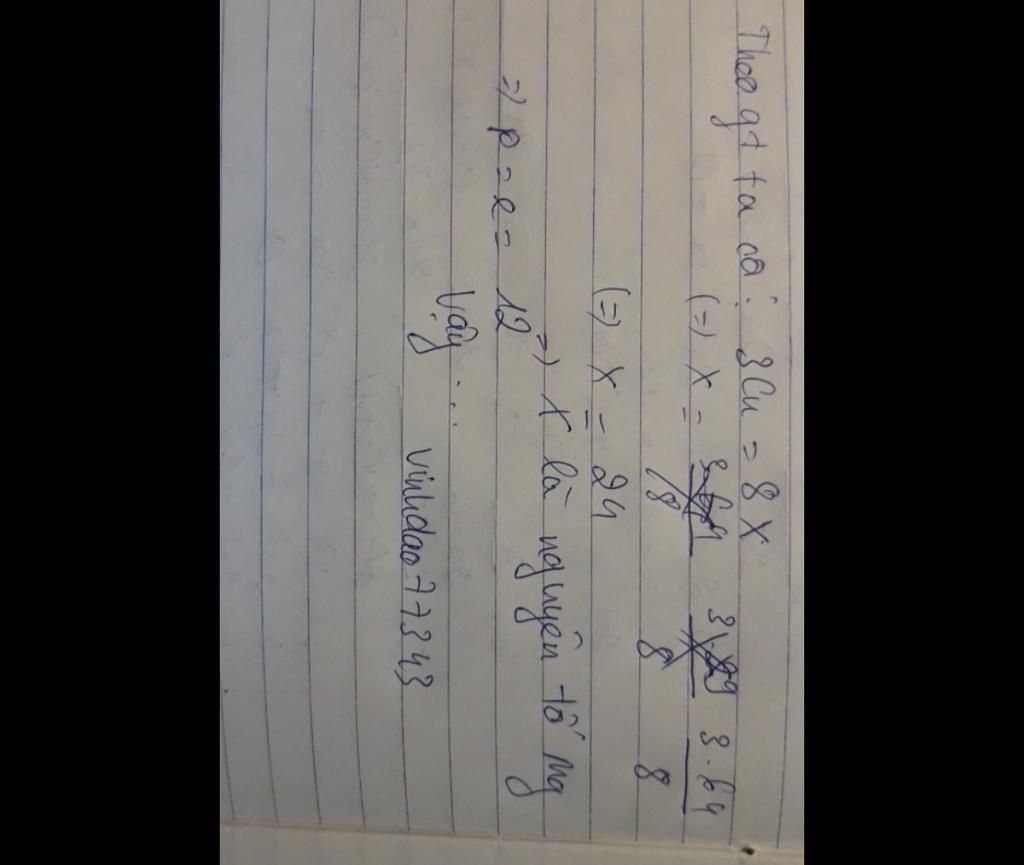 Theo gt ta có: 3Cu = 8X
(=) X = 3.64 / 8
(=) X = 24
=) X là nguyên tố Mg
=) p = e = 12
Vậy ...
vinhdao77343